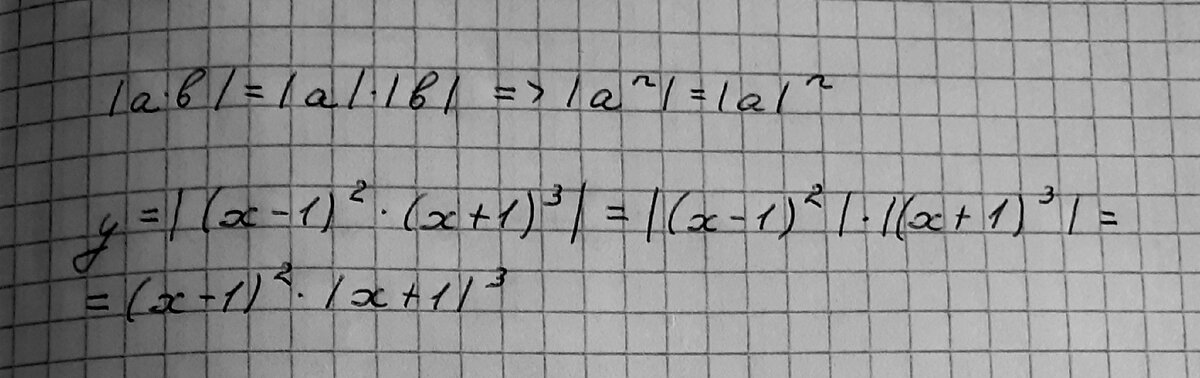 |a·b| = |a|·|b| => |aⁿ| = |a|ⁿ
y = |(x-1)²·(x+1)³| = |(x-1)²|·|(x+1)³| =
= (x-1)²·|x+1|³